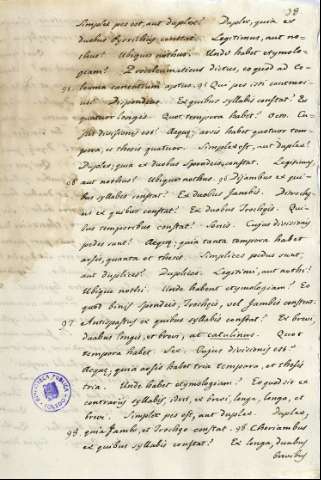 38
Simplex pes est, aut duplex? Duplex, quia ex
duobus Pyrrichiis constat. Legitimus, aut no-
thus? Ubique nothus. Unde habet etymolo-
giam? Proceleumaticus dictus, eo quod ad Ce-
leusma canentium aptus. Qui pes isti contrarius
est? Dispondeus. Ex quibus syllabis constat? Ex
quatuor longis. Quot tempora habet? Octo. Cu-
jus divisionis est? Aequae; arsis habet quatuor tem-
pora, et thesis quatuor. Simplex est, aut duplex?
Duplex, quia ex duobus Spondeis constat. Legitimus,
aut nothus? Ubique nothus. 96 Dijambus ex qui-
bus syllabis constat? Ex duobus Jambis. Ditroche-
us ex quibus constat? Ex duobus Trocheis. Qui-
bus temporibus constat? Senis. Cujus divisionis
pedes sunt? Aequae, quia tanta tempora habet
arsis, quanta et thesis. Simplices pedes sunt,
aut duplices? Duplices. Legitimi, aut nothi?
Ubique nothi. Unde habent etymologiam? Eo
quod binis Spondeis, Trocheis, vel Jambis constent.
97 Antispastus ex quibus syllabis constat? Ex brevi,
duabus longis, et brevi, ut catullinus. Quot
tempora habet? Sex. Cujus divisionis est?
Aequae, quia arsis habet tria tempora, et thesis
tria. Unde habet etymologiam? Eo quod sit ex
contrariis syllabis, idest, ex brevi, longa, longa, et
brevi. Simplex pes est, aut duplex? Duplex,
98 quia Jambo, et Trocheo constat. 98 Choriambus
ex quibus syllabis constat? Ex longa, duabus
brevibus
BIBLIOTECA PUBLICA
TOLEDO